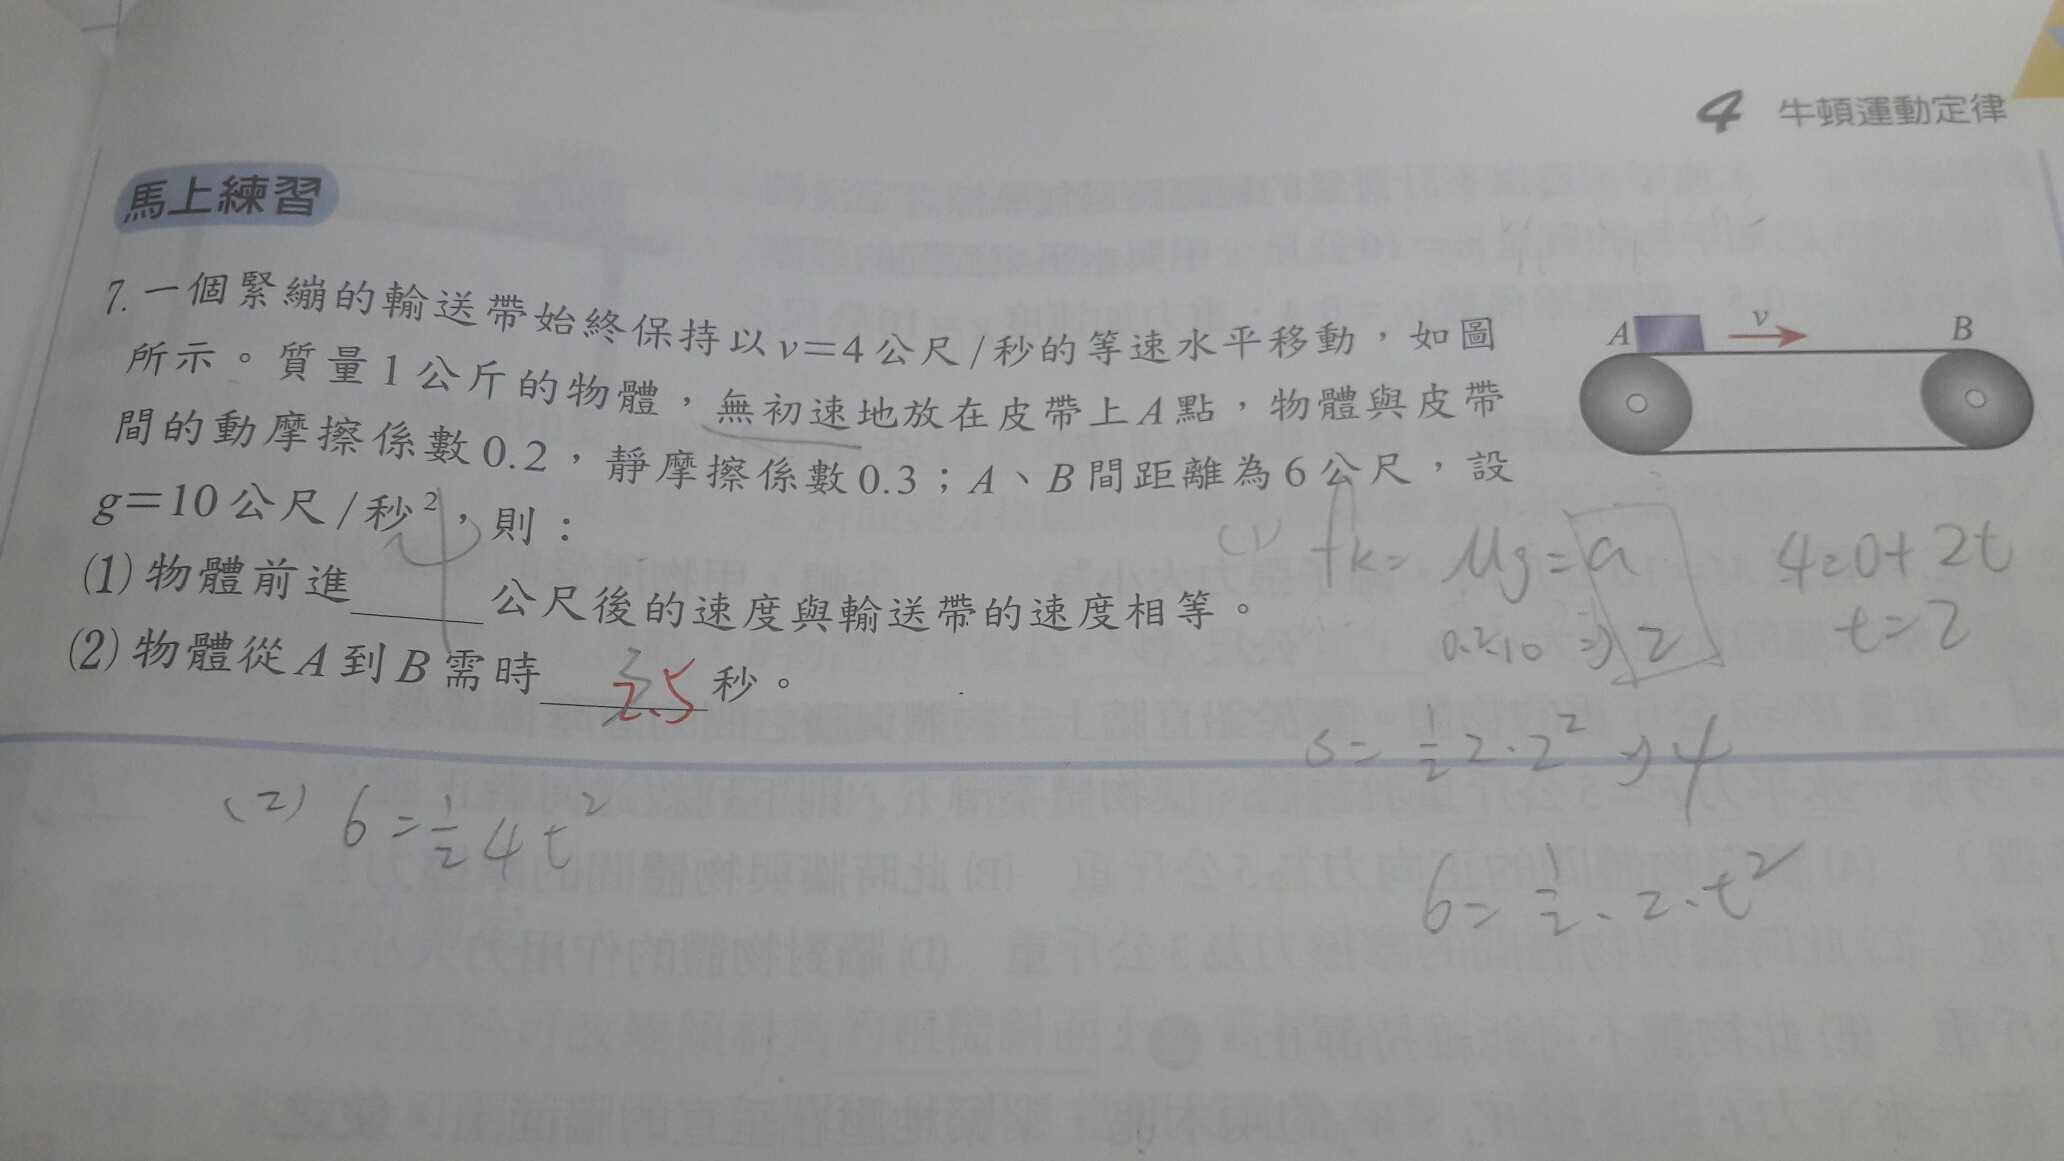 4 牛頓運動定律
馬上練習
7.一個緊繃的輸送帶始終保持以v=4公尺/秒的等速水平移動，如圖
所示。質量1公斤的物體，無初速地放在皮帶上A點，物體與皮帶
間的動摩擦係數0.2，靜摩擦係數0.3；A、B間距離為6公尺，設
g=10公尺/秒²，則：
(1)物體前進 4 公尺後的速度與輸送帶的速度相等。
(2)物體從A到B需時 2.5 秒。
A v B
(1) fk= μg=a
0.2·10 ⇒ 2
4=0+2t
t=2
s= ½2·2² ⇒ 4
6= ½·2·t²
(2) 6=½4t²